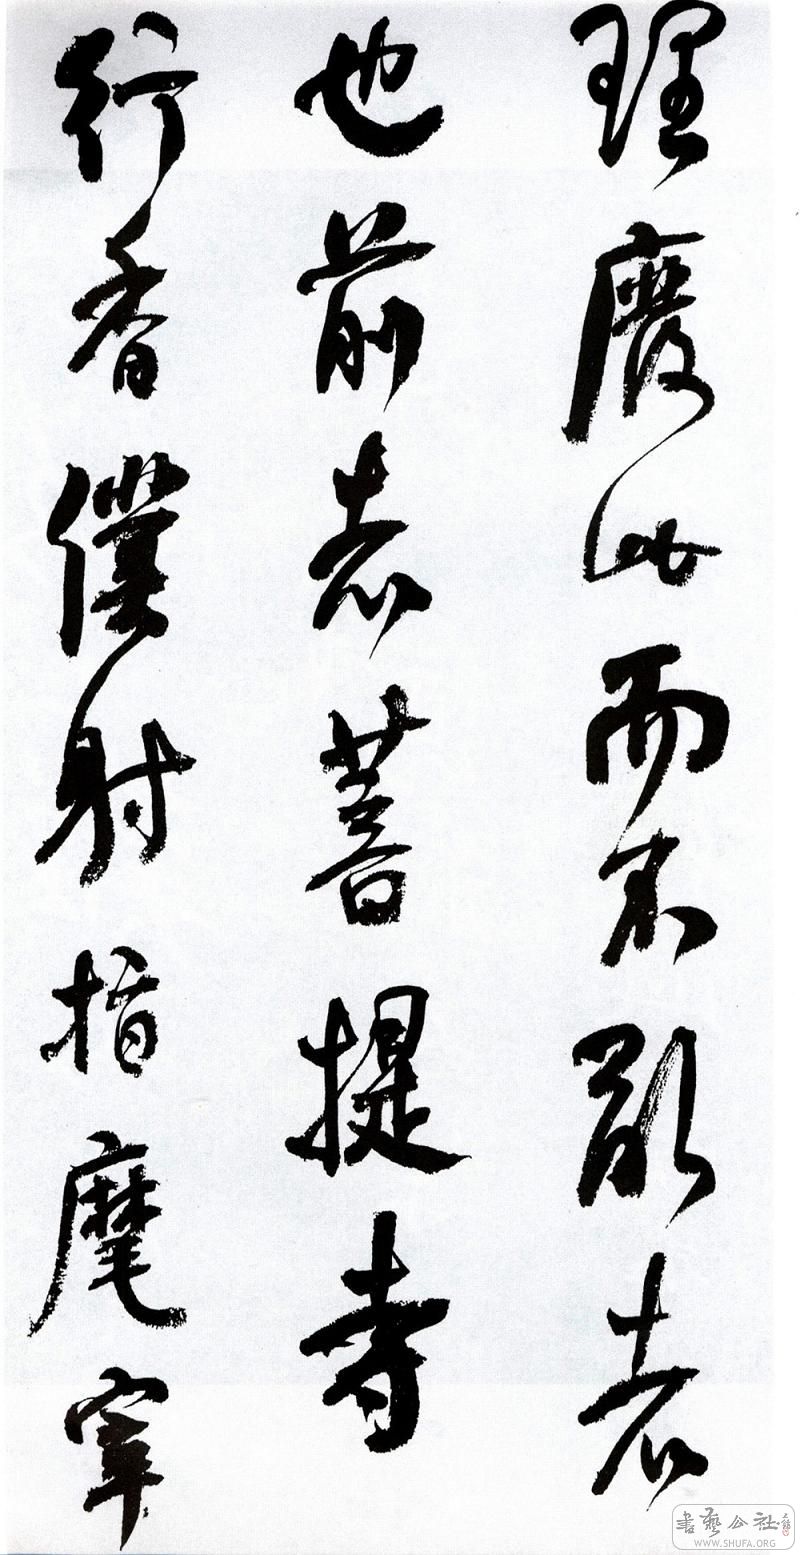 理廢此而不者
也前者菩提寺
行香僕射指麾宰
書藝公社
WWW.SHUFA.ORG